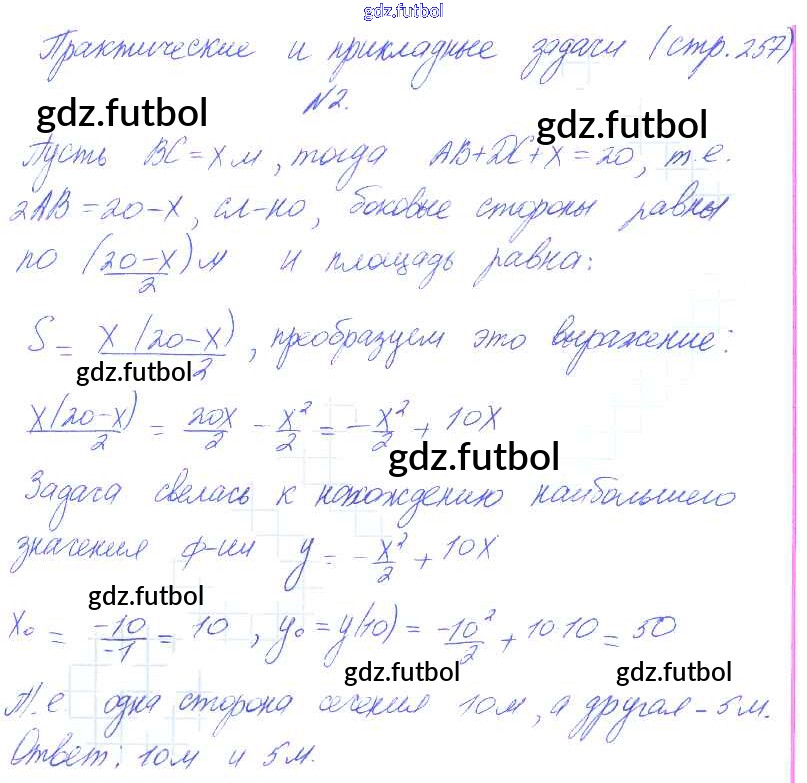 gdz.futbol
Практические и прикладные задачи (стр. 257)
gdz.futbol
№2.
gdz.futbol
Пусть BC = x м, тогда AB + DC + x = 20, т.е.
2AB = 20 - x, сл-но, боковые стороны равны
по (20 - x)/2 м и площадь равна:
S = x(20 - x)/2, преобразуем это выражение:
gdz.futbol
x(20 - x)/2 = 20x/2 - x²/2 = -x²/2 + 10x
gdz.futbol
Задача свелась к нахождению наибольшего
значения ф-ии y = -x²/2 + 10x
gdz.futbol
x₀ = -10/-1 = 10, y₀ = y(10) = -10²/2 + 10·10 = 50
gdz.futbol gdz.futbol
Т.е. одна сторона сечения 10 м, а другая - 5 м.
Ответ: 10 м и 5 м.